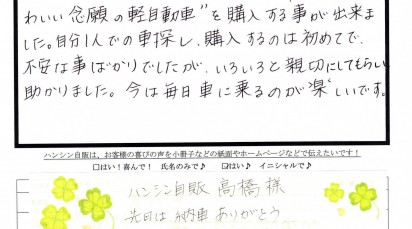 わいい念願の軽自動車"を購入する事が出来ま
した。自分1人での車探し、購入するのは初めてで、
不安な事ばかりでしたが、いろいろと親切にしてもらい
助かりました。今は毎日車に乗るのが"楽"しいです。
ハンシン自販は、お客様の喜びの声を小冊子などの紙面やホームページなどで伝えたいです!
□はい!喜んで! 氏名のみで♪ □はい♪ イニシャルで♪
ハンシン自販 高橋様
先日は 納車 ありがとう